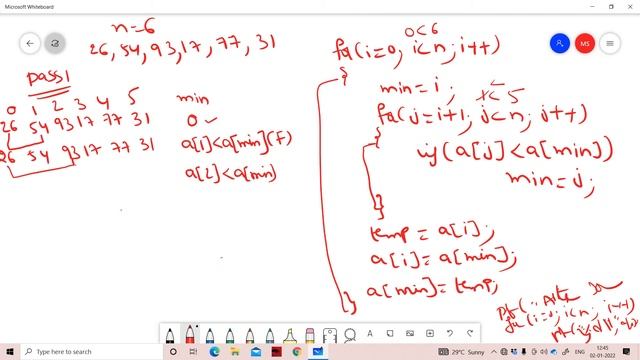 Microsoft Whiteboard
n=6
26, 54, 93, 17, 77, 31
pass1
0 1 2 3 4 5 min
26 54 93 17 77 31 0
a[1]<a[min](F)
26 54 93 17 77 31
a[2]<a[min]
0<6
for(i=0; i<n; i++)
{
min=i;
1<5
for(j=i+1; j<n; j++)
{
if(a[j]<a[min])
min=j;
}
temp=a[i];
a[i]=a[min];
a[min]=temp;
}
for(i=0; i<n; i++)
MS
Type here to search
29°C Sunny
12:45
02-01-2022